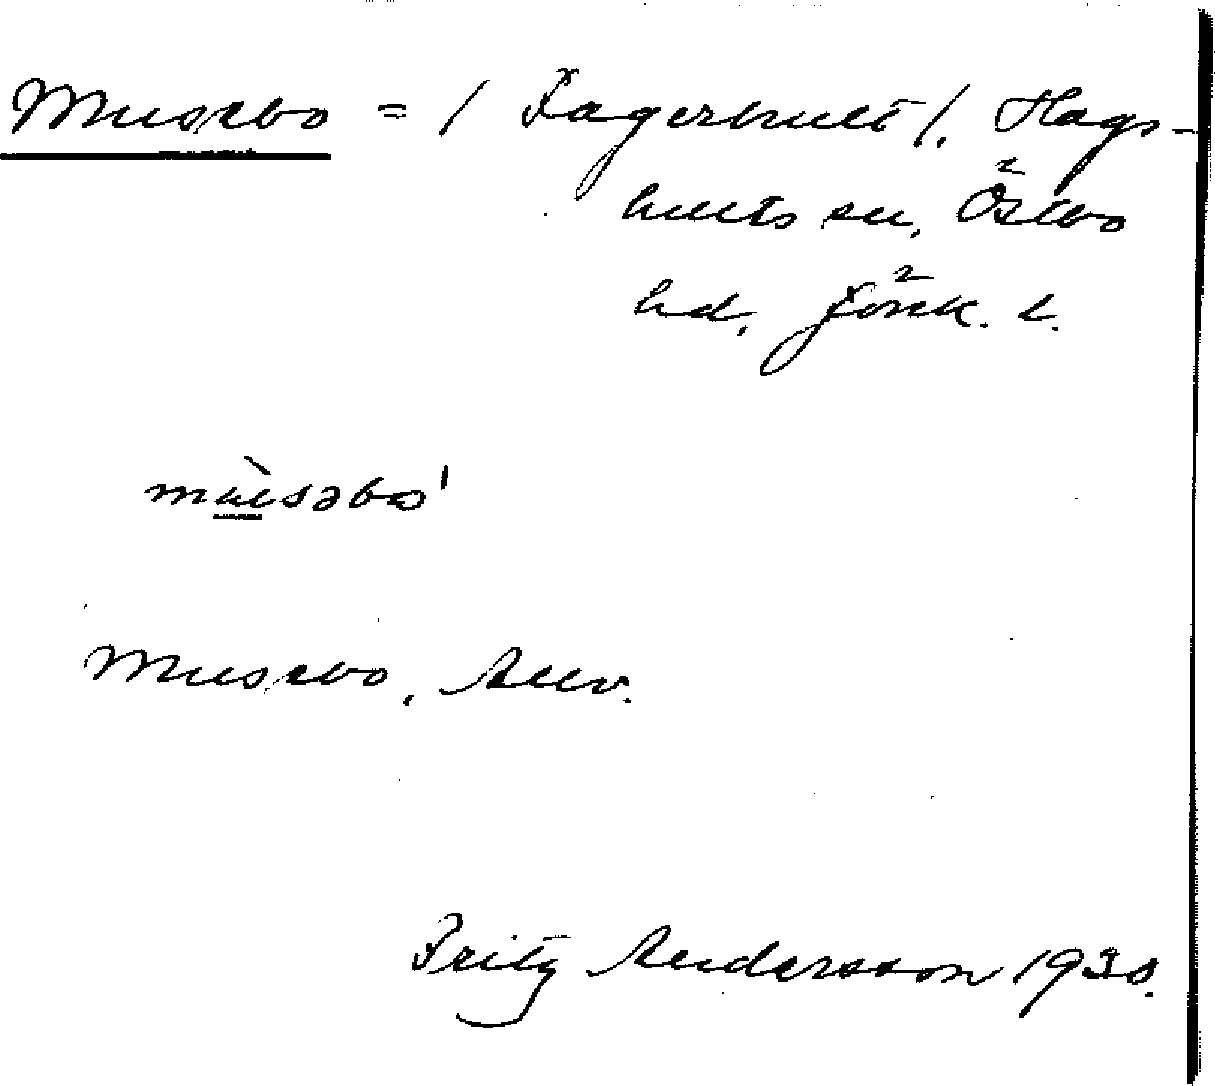 Musebo = / Fagerhult /. Hags-
hults sn, Östbo
hd, Jönk. l.
mùsəbo'
Musebo, Allv.
Fritz Andersson 1930.